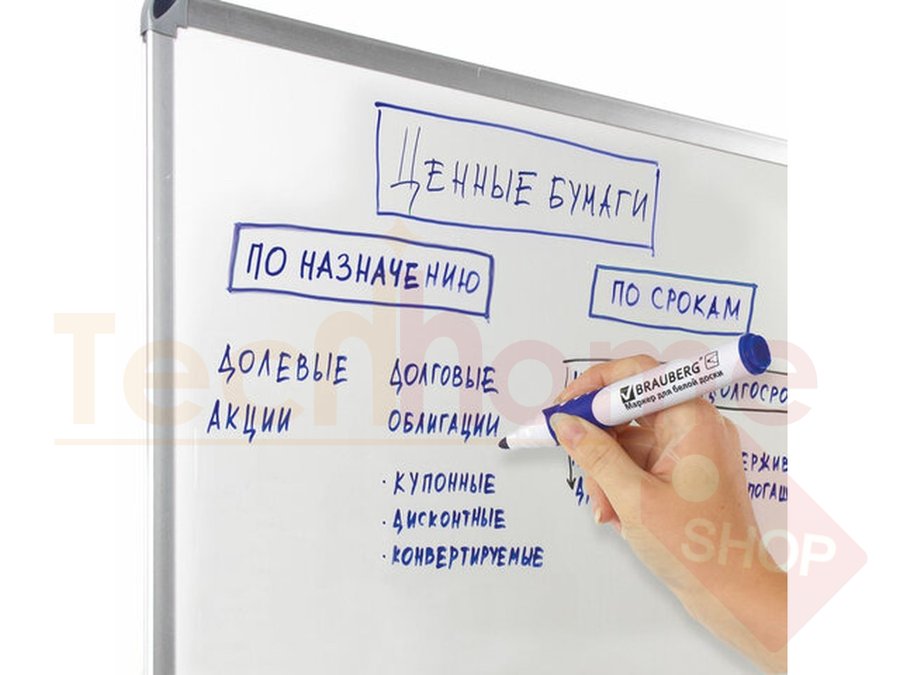 ЦЕННЫЕ БУМАГИ
ПО НАЗНАЧЕНИЮ
ПО СРОКАМ
ДОЛЕВЫЕ
АКЦИИ
ДОЛГОВЫЕ
ОБЛИГАЦИИ
· КУПОННЫЕ
· ДИСКОНТНЫЕ
· КОНВЕРТИРУЕМЫЕ
BRAUBERG
Маркер для белой доски
Techhome
SHOP